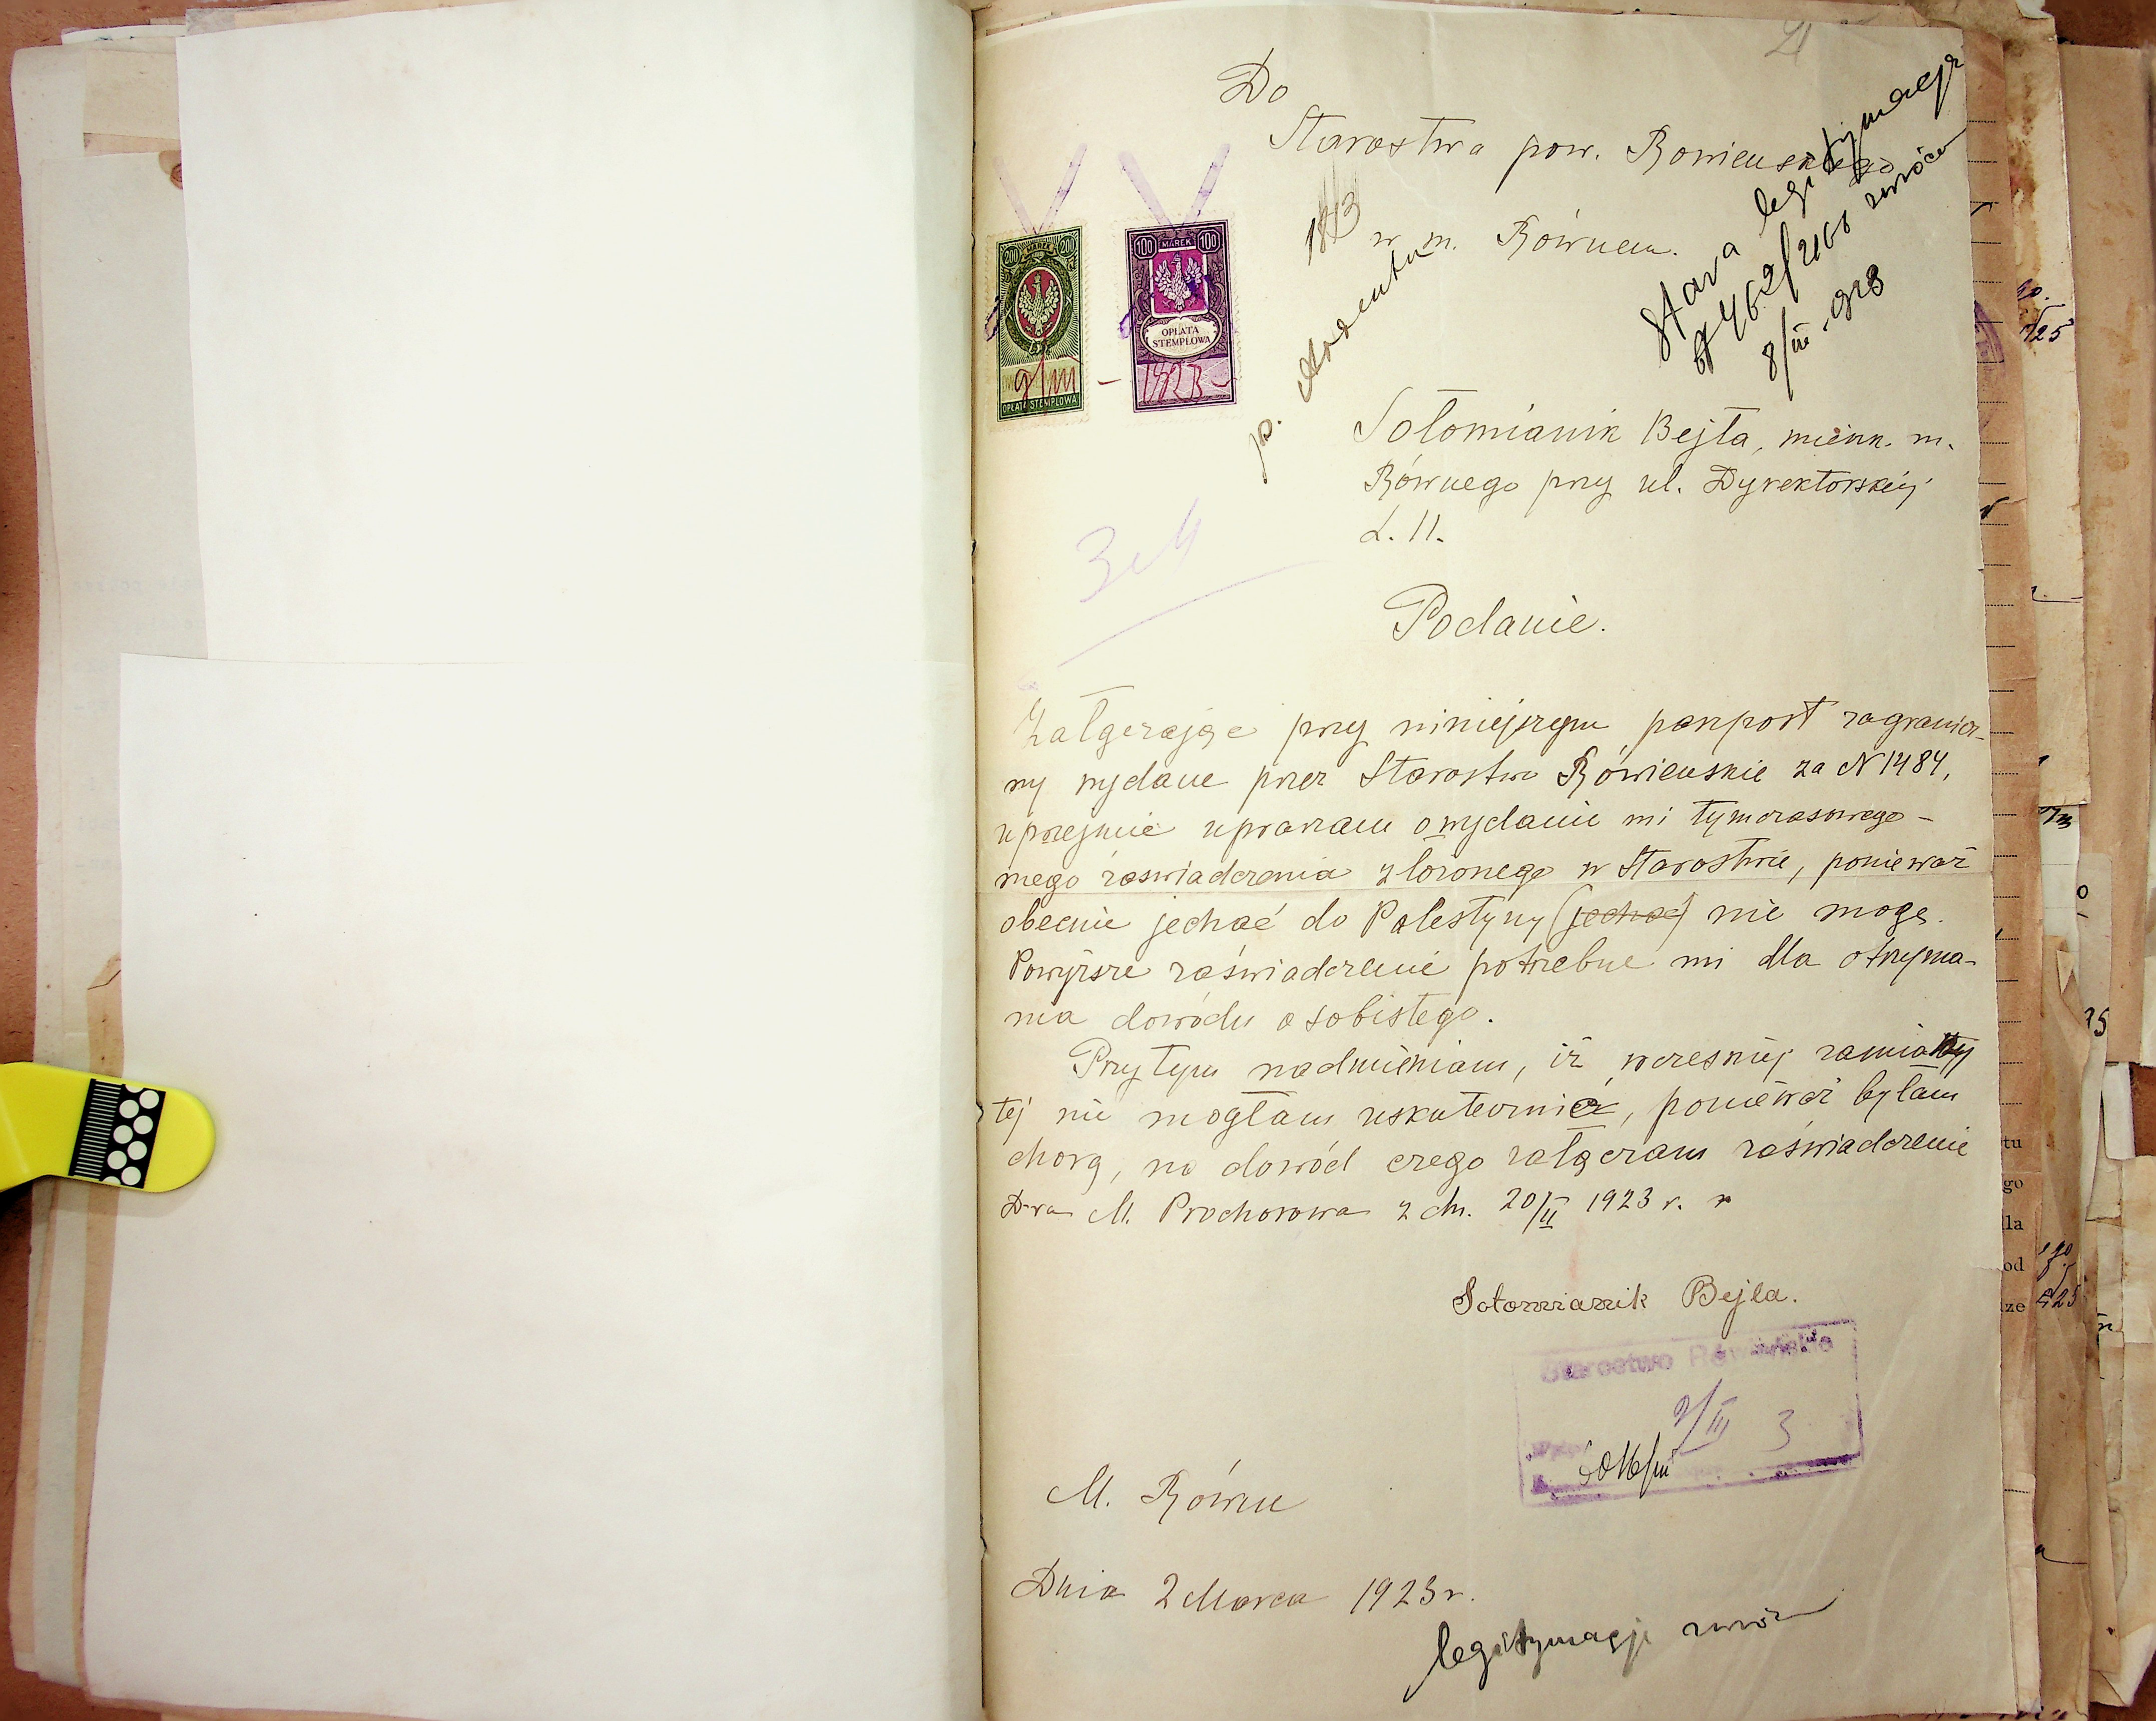 Do
Starostwa pow. Rówieńskiego
w m. Równem.
Stara legitymacja
8/III. 923
200 MAREK 200
OPŁATA STEMPLOWA
9/III
100 MAREK 100
OPŁATA
STEMPLOWA
1923
Sołomianik Bejła, mieszk. m.
Równego przy ul. Dyrektorskiej
L. 11.
Podanie.
Załączając przy niniejszym paszport zagranicz-
ny wydane przez Starostwo Rówieńskie za N 1484,
uprzejmie upraszam o wydanie mi tymczasowego-
mego zaswiadczenia złożonego w Starostwie, ponieważ
obecnie jechać do Palestyny (jechać) nie mogę.
Powyższe zaświadczenie potrzebne mi dla otrzyma-
nia dowódu osobistego.
Przytym nadmieniam, iż wcześniej zamiany
tej nie mogłam uskutecznić, ponieważ byłam
chorą, na dowód czego załączam zaświadczenie
D-ra M. Prochorowa z dn. 20/II 1923 r.
Sołomianik Bejla.
Starostwo Rówieńskie
2/III 3
M. Równe
Dnia 2 Marca 1923 r.
legitymację